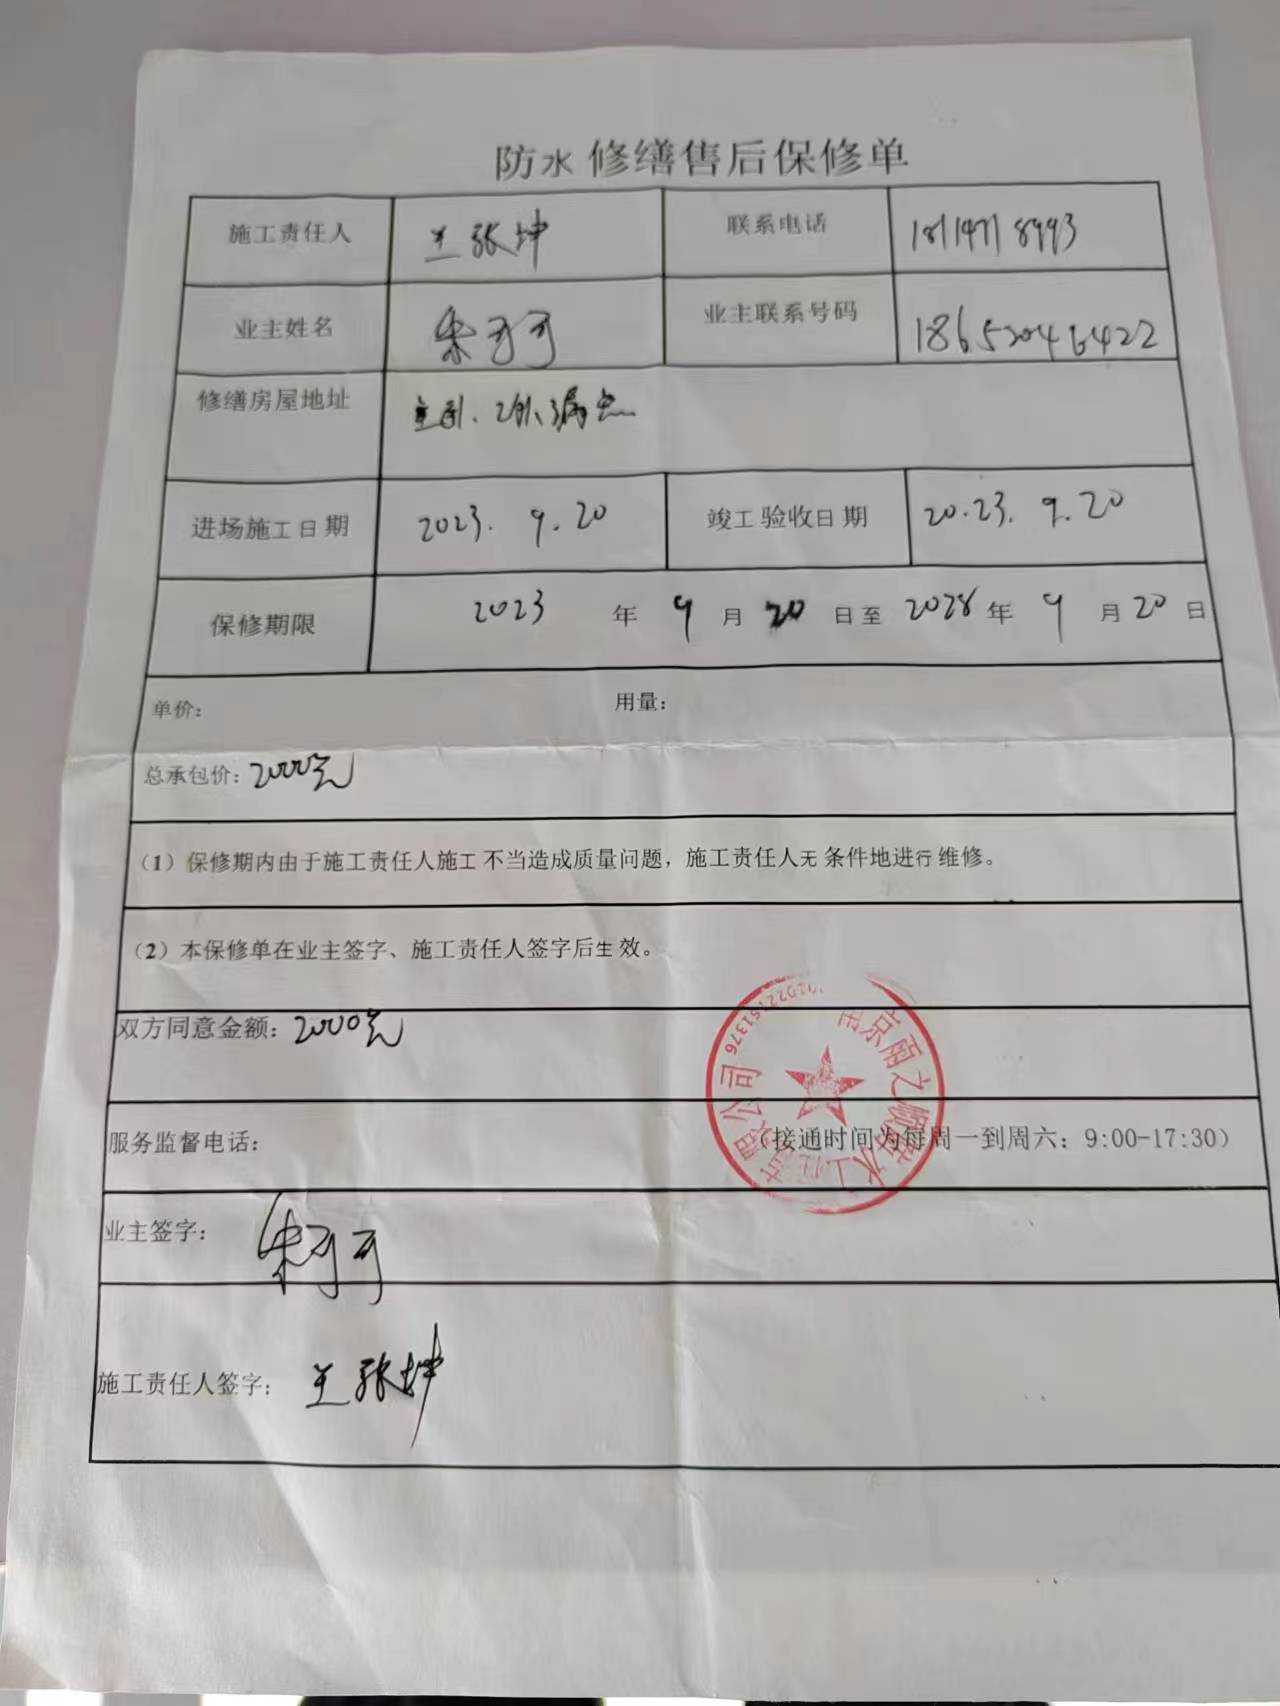 防水修缮售后保修单
施工责任人 王张坤 联系电话 18114718993
业主姓名 朱可可 业主联系号码 18652046422
修缮房屋地址 漏点
进场施工日期 2023.9.20 竣工验收日期 2023.9.20
保修期限 2023年9月20日至2028年9月20日
单价: 用量:
总承包价: 2000元
(1)保修期内由于施工责任人施工不当造成质量问题,施工责任人无条件地进行维修。
(2)本保修单在业主签字、施工责任人签字后生效。
双方同意金额: 2000元
服务监督电话: (接通时间为每周一到周六: 9:00-17:30)
业主签字: 朱可可
施工责任人签字: 王张坤
南京雨之顺防水工程有限公司